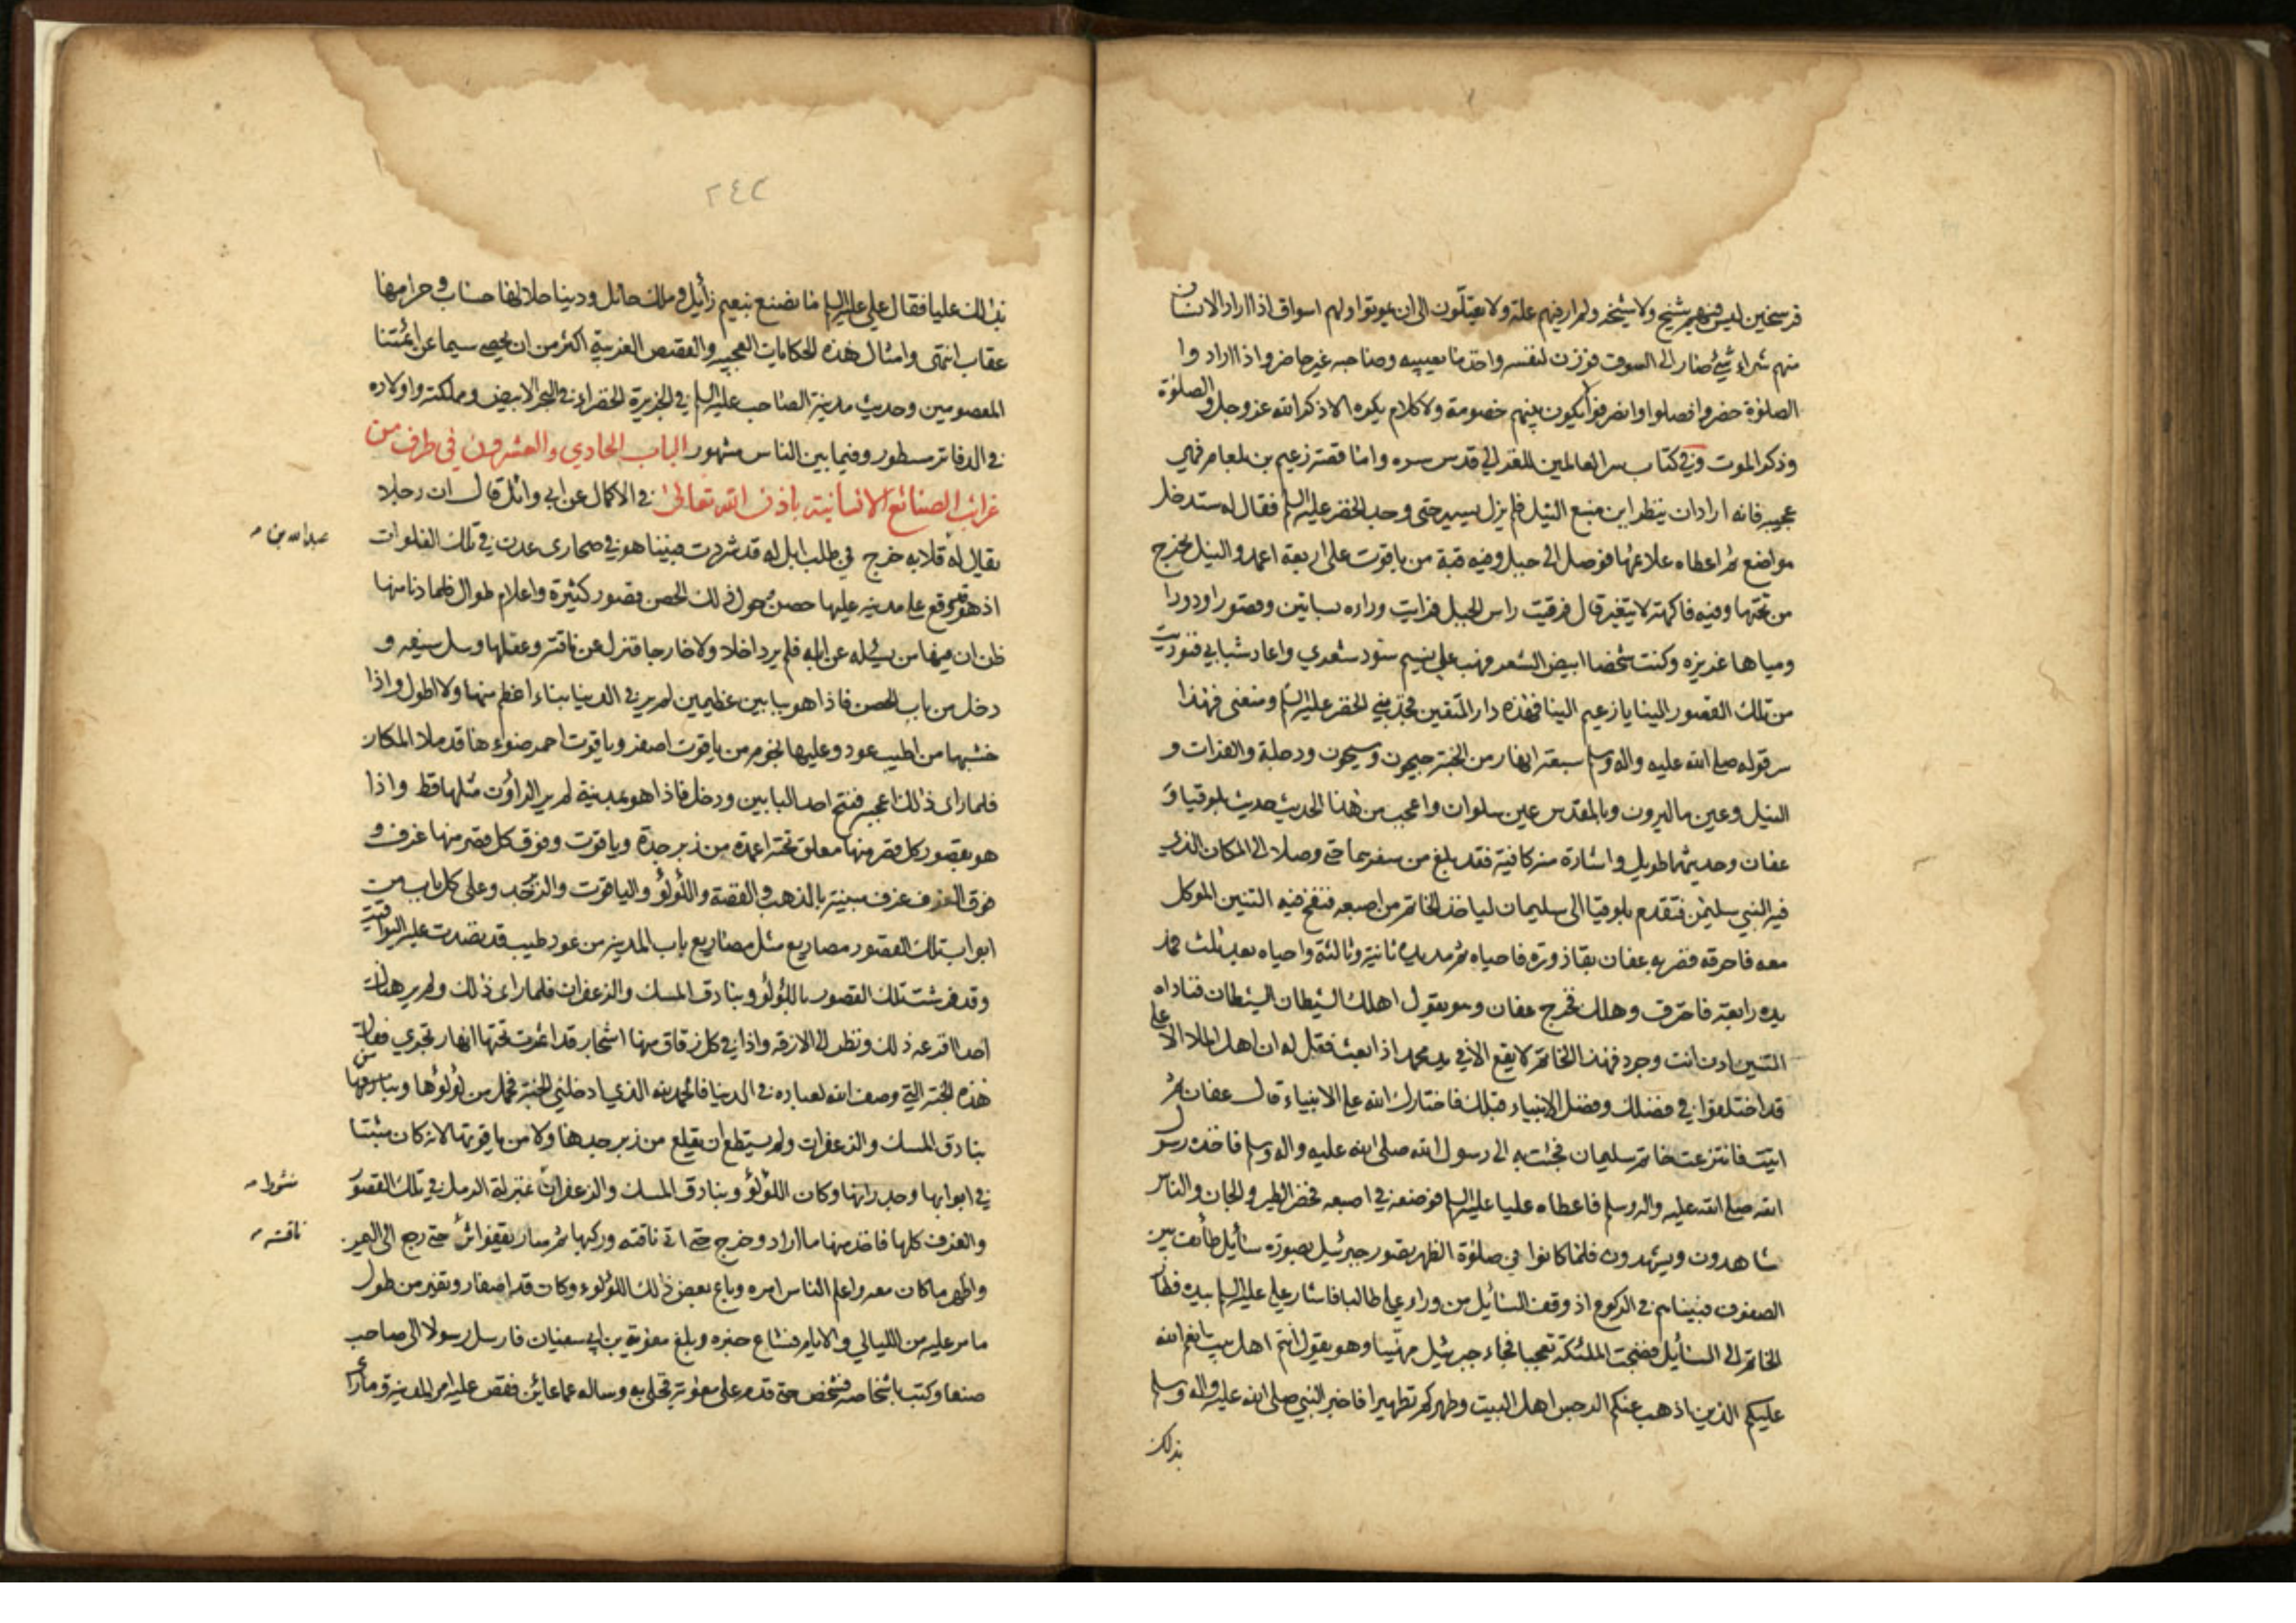 فرسخين ليس فيهم شيخ ولا شيخة ولم ار فيهم علة ولا يعتلّون الى ان يموتوا ولهم اسواق اذا اراد الانسان
منهم شراء شئ صار الى السوق فوزن لنفسه واخذ ما يصيبه وصاحبه غير حاضر واذا ارادوا
الصلوة حضروا فصلوا وانصرفوا لا يكون بينهم خصومة ولا كلام يكره الا ذكر الله عز وجل والصلوة
وذكر الموت وفي كتاب سر العالمين للغزالي قدس سره واما قصة زعيم بن بلعام فهي
عجيبه فانه اراد ان ينظر اين منبع النيل فلم يزل يسير حتى وجد الخضر عليه السلم فقال له ستدخل
مواضع ثم اعطاه علائمها فوصل الى جبل وفيه قبة من ياقوت على اربعة اعمد والنيل يخرج
من تحتها وفيه فاكهة لا يتغير قال فرقيت راس الجبل فرايت وراه بساتين وقصورا ودورا
ومياها غزيره وكنت شخصا ابيض الشعر فهب علي نسيم سود شعري واعاد شبابي فنوديت
من تلك القصور الينا يا زعيم الينا فهذه دار المتقين فجذبني الخضر عليه السلم ومنعني فهذا
سر قوله صلى الله عليه واله وسلم سبعة انهار من الجنة جيحون وسيحون ودجلة والفرات و
النيل وعين بالبيرون وبالمقدس عين سلوان واعجب من هذا الحديث حديث بلوقيا و
عفان وحديثهما طويل واشارة منه كافية فقد بلغ من سفرهما حتى وصلا الى المكان الذي
فيه النبي سليمن فتقدم بلوقيا الى سليمان لياخذ الخاتم من اصبعه فنفخ فيه التنين الموكل
معه فاحرقه فضربه عفان بقاذورة فاحياه ثم مد يده ثانية وثالثة واحياه بعد ثلث فمد
يده رابعة فاحترق وهلك فخرج عفان وهو يقول اهلك الشيطان الشيطان فناداه
التنين ادن انت وجرد فهذا الخاتم لا يقع الا في يد محمد اذا بعث فقيل له ان اهل الملا الاعلى
قد اختلفوا في فضلك وفضل الانبياء قبلك فاختارك الله على الانبياء قال عفان ثم
اتيت فانتزعت خاتم سليمان فجئت به الى رسول الله صلى الله عليه واله وسلم فاخذه رسول
الله صلى الله عليه واله وسلم فاعطاه عليا عليه السلم فوضعه في اصبعه فحضر الطير والجان والناس
شاهدون ويشهدون فلما كانوا في صلوة الظهر تصور جبرئيل بصورة سائل طائف بين
الصفوف فبيناهم في الركوع اذ وقف السائل من وراء علي طالبا فاشار علي عليه السلم بيده فطار
الخاتم الى السائل فضجت الملئكة تعجبا فجاء جبرئيل مهنيا وهو يقول انتم اهل بيت انعم الله
عليكم الذين اذهب عنكم الرجس اهل البيت وطهركم تطهيرا فاخبر النبي صلى الله عليه واله وسلم
بذلك
٢٤٢
بذلك عليا فقال علي عليه السلم ما نصنع بنعيم زائل وملك حائل ودنيا حلالها حساب وحرامها
عقاب انتهى وامثال هذه الحكايات العجيبه والقصص الغريبة اكثر من ان يحصى سيما عن ائمتنا
المعصومين وحديث مدينة الصاحب عليه السلم في الجزيرة الخضراء في البحر الابيض ومملكته واولاده
في الدفاتر مسطور وفيما بين الناس مشهور الباب الحادي والعشرون في طرف من
غرائب الصنائع الانسانية باذن الله تعالى في الاكمال عن ابي وائل قال ان رجلا
عبد الله بن
يقال له قلابه خرج في طلب ابل له قد شردت فبينا هو في صحارى عدن في تلك الفلوات
اذ هو وقع على مدينه عليها حصن حول ذلك الحصن قصور كثيرة واعلام طوال فلما دنا منها
ظن ان فيها من يسئله عن ابله فلم ير داخلا ولا خارجا فنزل عن ناقته وعقلها وسل سيفه و
دخل من باب الحصن فاذا هو ببابين عظيمين لم ير في الدنيا بناء اعظم منهما ولا اطول واذا
خشبها من اطيب عود وعليها نجوم من ياقوت اصفر وياقوت احمر ضوءها قد ملا المكان
فلما راى ذلك اعجبه ففتح احد البابين ودخل فاذا هو بمدينة لم ير الراؤن مثلها قط واذا
هو بقصور كل قصر منها معلق تحته اعمدة من زبرجدة وياقوت وفوق كل قصر منها غرف و
فوق الغرف غرف مبنية بالذهب والفضة واللؤلؤ والياقوت والزبرجد وعلى كل باب من
ابواب تلك القصور مصاريع مثل مصاريع باب المدينه من عود طيب قد نضدت عليه اليواقيت
وقد فرشت تلك القصور باللؤلؤ وبنادق المسك والزعفران فلما راى ذلك ولم ير هناك
احدا افزعه ذلك ونظر الى الازقه واذا في كل زقاق منها اشجار قد اثمرت تحتها انهار تجري فقال
هذه الجنة التي وصف الله لعباده في الدنيا فالحمد لله الذي ادخلني الجنة فحمل من لؤلؤها ومن
بنادق المسك والزعفران ولم يستطع ان يقلع من زبرجدها ولا من ياقوتها لانه كان مثبتا
في ابوابها وجدرانها وكان اللؤلؤ وبنادق المسك والزعفران بمنزلة الرمل في تلك القصور
والغرف كلها فاخذ منها ما اراد وخرج حتى اتى ناقته وركبها ثم سار يقفو اثر حتى رجع الى اليمن
ناقته
واظهر ما كان معه واعلم الناس امره وباع بعض ذلك اللؤلوء وكان قد اصفار وتغير من طول
ما مر عليه من الليالي والايام فشاع خبره وبلغ معوية بن ابي سفيان فارسل رسولا الى صاحب
صنعا وكتب باشخاصه فشخص حتى قدم على معوية فخلى به وساله عما عاين فقص عليه امر المدينة وما راى